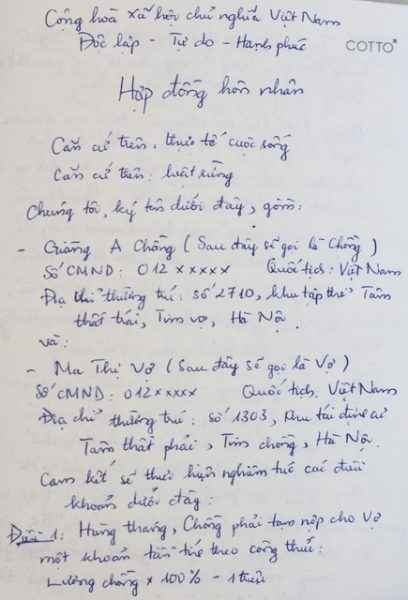 Cộng hoà xã hội chủ nghĩa Việt Nam
Độc lập - Tự do - Hạnh phúc
COTTO
Hợp đồng hôn nhân
Căn cứ trên: thực tế cuộc sống
Căn cứ trên: luật rừng
Chúng tôi, ký tên dưới đây, gồm:
- Giàng A Chồng (Sau đây sẽ gọi là Chồng)
Số CMND: 012xxxxx Quốc tịch: Việt Nam
Địa chỉ thường trú: số 2710, khu tập thể Tâm
thất trái, Tim vợ, Hà Nội.
và:
- Ma Thị Vợ (Sau đây sẽ gọi là Vợ)
Số CMND: 012xxxx Quốc tịch: Việt Nam
Địa chỉ thường trú: số 1303, khu tái định cư
Tâm thất phải, Tim chồng, Hà Nội.
Cam kết sẽ thực hiện nghiêm túc các điều
khoản dưới đây:
Điều 1: Hàng tháng, Chồng phải tạm nộp cho Vợ
một khoản tiền tính theo công thức:
Lương chồng x 100% - 1 triệu